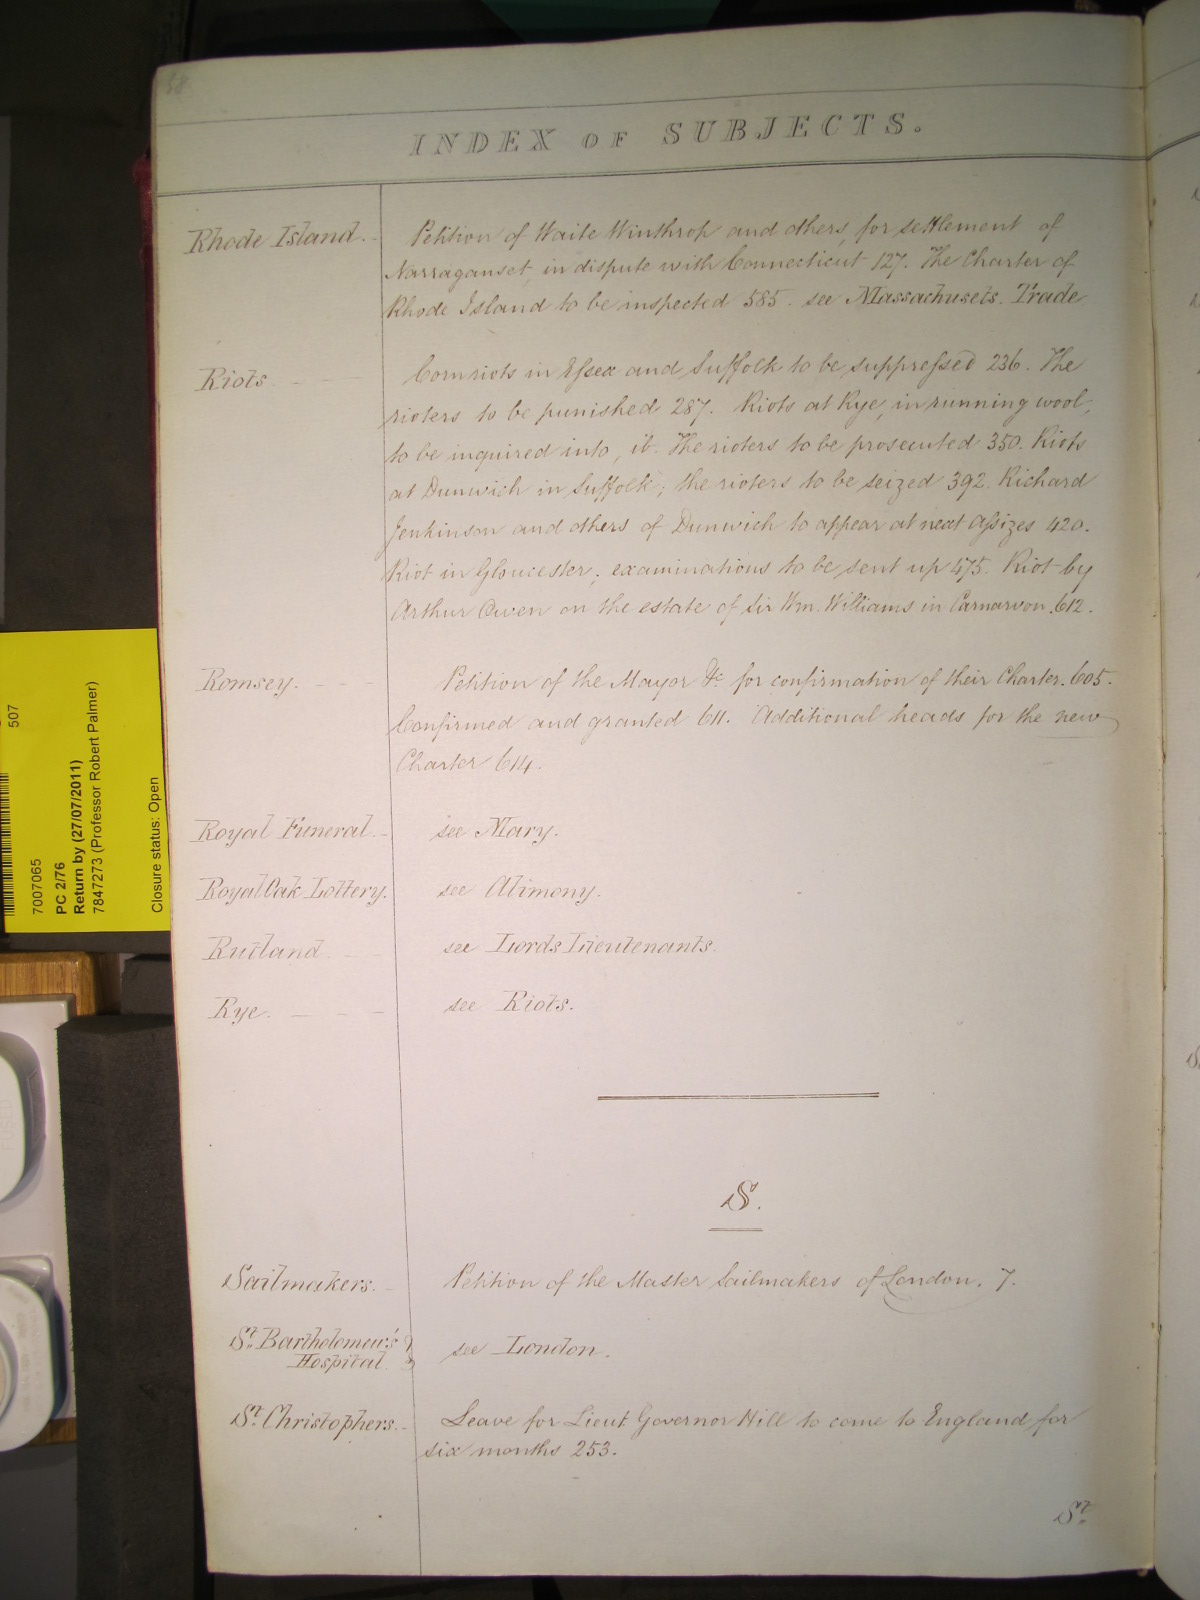 58
INDEX OF SUBJECTS.
Rhode Island. Petition of Waite Winthrop and others, for settlement of
Narraganset, in dispute with Connecticut 127. The Charter of
Rhode Island to be inspected 585. see Massachusets. Trade
Riots Cornriots in Essex and Suffolk to be suppressed 236. The
rioters to be punished 287. Riots at Rye, in running wool,
to be inquired into, ib. The rioters to be prosecuted 350. Riots
at Dunwich in Suffolk; the rioters to be seized 392. Richard
Jenkinson and others of Dunwich to appear at next Assizes 420.
Riot in Gloucester; examinations to be sent up 475. Riot by
Arthur Owen on the estate of Sir Wm. Williams in Carnarvon 612.
Romsey. Petition of the Mayor &c for confirmation of their Charter. 605.
Confirmed and granted 611. Additional heads for the new
Charter 614.
Royal Funeral. see Mary.
Royal Oak Lottery. see Alimony.
Rutland. see Lords Lieutenants.
Rye. see Riots.
S.
Sailmakers. Petition of the Master Sailmakers of London. 7.
St. Bartholomew's
Hospital. see London.
St. Christophers. Leave for Lieut. Governor Hill to come to England for
six months 253.
St.
507
7007065
PC 2/76
Return by (27/07/2011)
7847273 (Professor Robert Palmer)
Closure status: Open